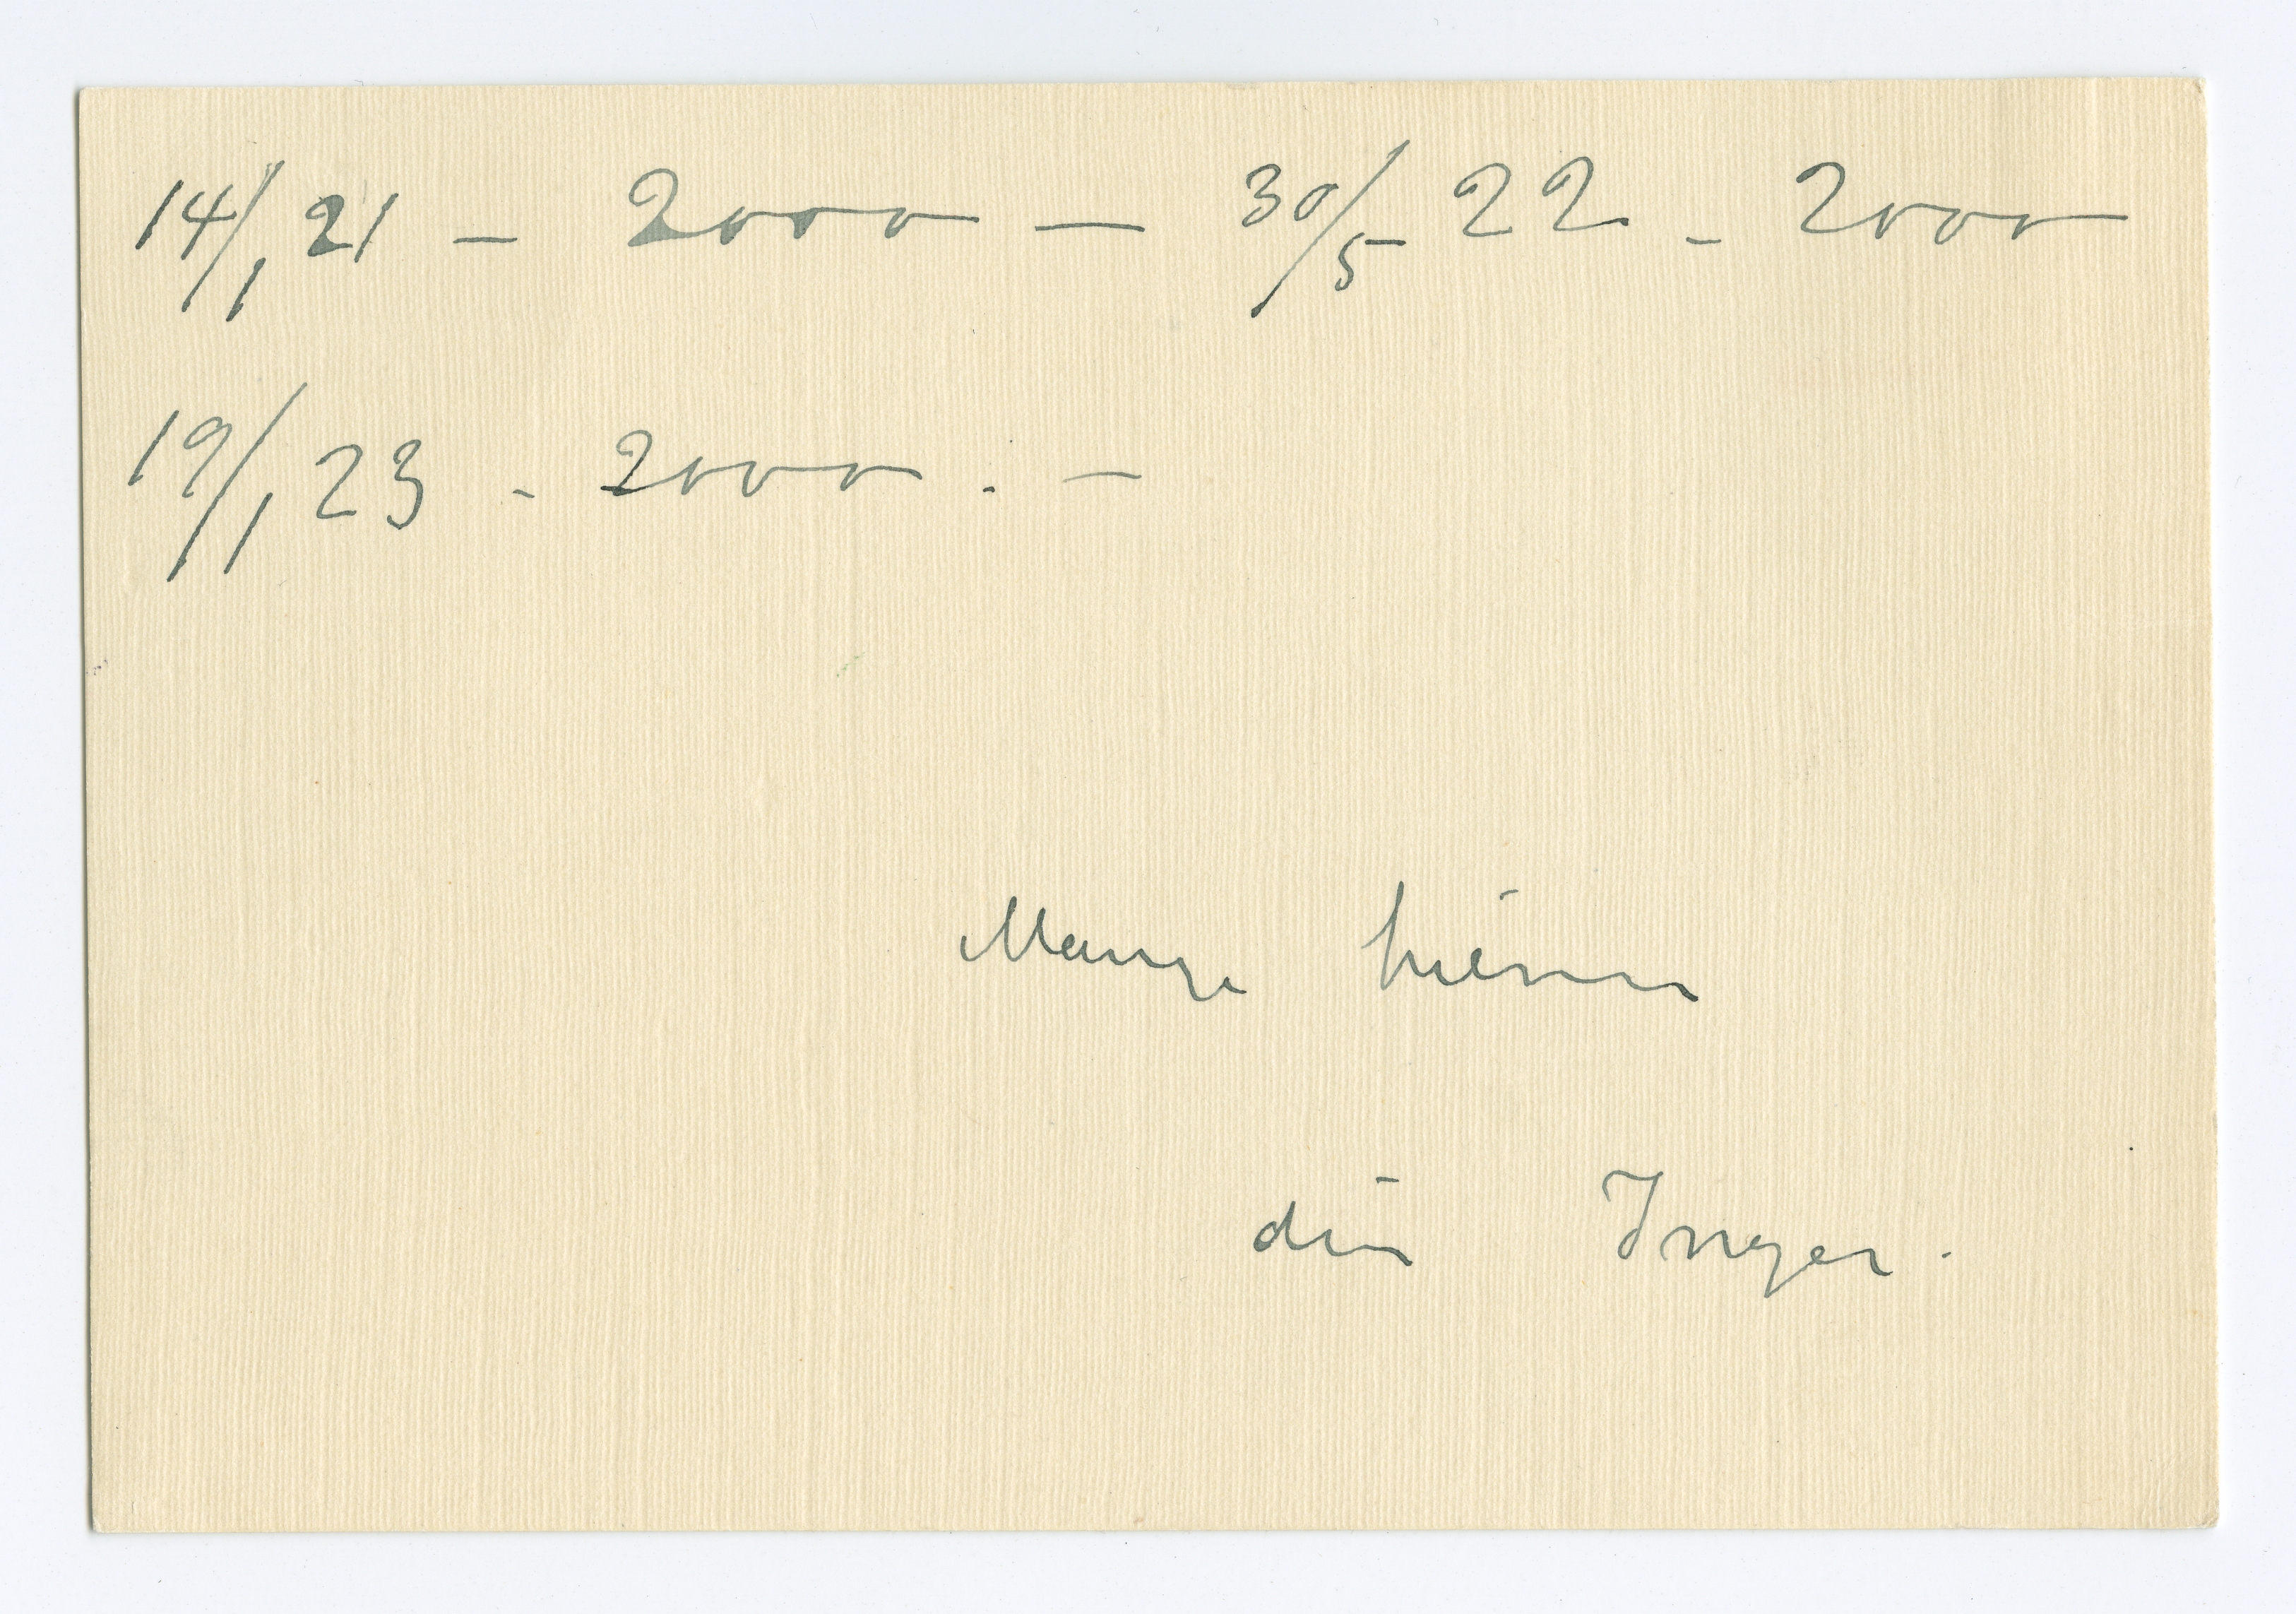 14/1 21 – 2000 — 30/5 22 – 2000
19/1 23 – 2000. –
Mange hilsner
din Inger.